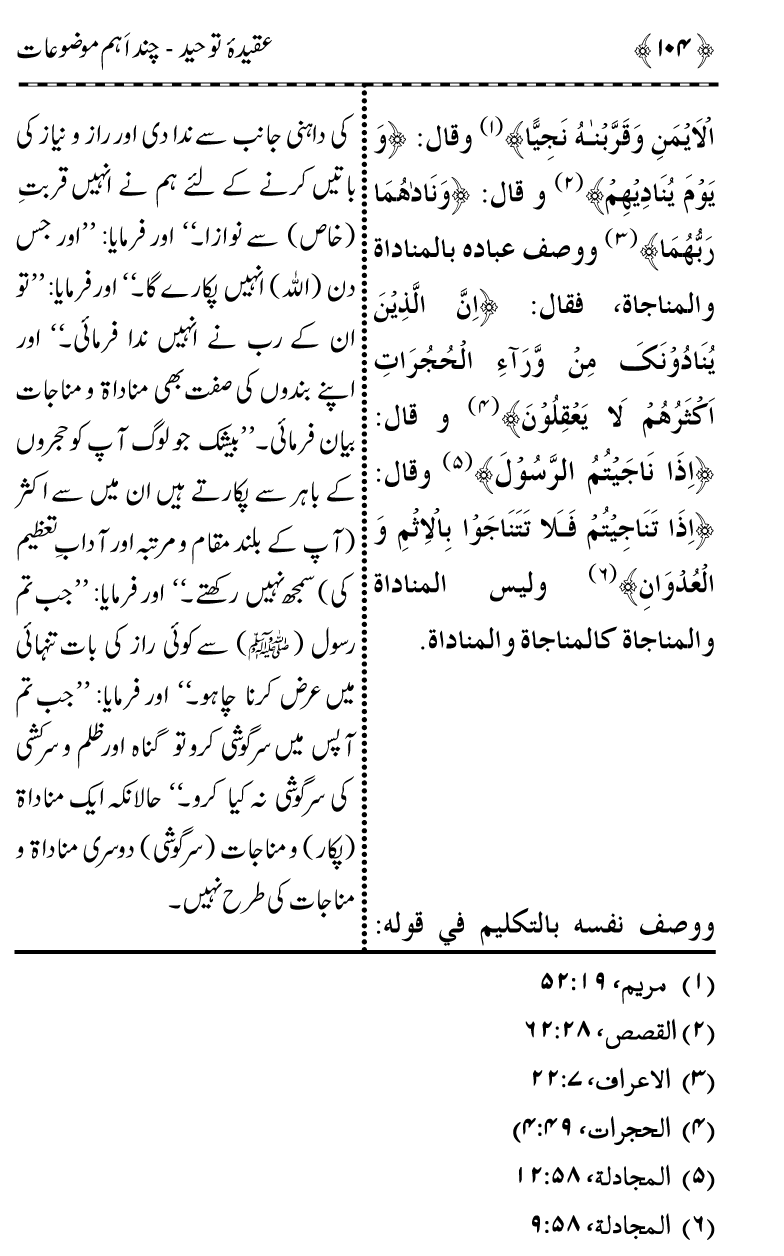 ﴿۱۰۴﴾ عقیدۂ توحید - چند اَہم موضوعات
الْاَیْمَنِ وَقَرَّبْنٰهُ نَجِیًّا﴾(۱) وقال: ﴿وَ
یَوْمَ یُنَادِیْهِمْ﴾(۲) و قال: ﴿وَنَادٰهُمَا
رَبُّهُمَا﴾(۳) ووصف عباده بالمناداة
والمناجاة، فقال: ﴿اِنَّ الَّذِیْنَ
یُنَادُوْنَکَ مِنْ وَّرَآءِ الْحُجُرَاتِ
اَکْثَرُهُمْ لَا یَعْقِلُوْنَ﴾(۴) و قال:
﴿اِذَا نَاجَیْتُمُ الرَّسُوْلَ﴾(۵) وقال:
﴿اِذَا تَنَاجَیْتُمْ فَـلَا تَتَنَاجَوْا بِالْاِثْمِ وَ
الْعُدْوَانِ﴾(۶) ولیس المناداة
والمناجاة کالمناجاة والمناداة.
ووصف نفسه بالتکلیم في قوله:
کی داہنی جانب سے ندا دی اور راز و نیاز کی
باتیں کرنے کے لئے ہم نے انہیں قربتِ
(خاص) سے نوازا۔‘‘ اور فرمایا: ’’اور جس
دن (اللہ) انہیں پکارے گا۔‘‘ اور فرمایا: ’’تو
ان کے رب نے انہیں ندا فرمائی۔‘‘ اور
اپنے بندوں کی صفت بھی مناداۃ و مناجات
بیان فرمائی۔ ’’بیشک جو لوگ آپ کو حجروں
کے باہر سے پکارتے ہیں ان میں سے اکثر
(آپ کے بلند مقام و مرتبہ اور آدابِ تعظیم
کی) سمجھ نہیں رکھتے۔‘‘ اور فرمایا: ’’جب تم
رسول (ﷺ) سے کوئی راز کی بات تنہائی
میں عرض کرنا چاہو۔‘‘ اور فرمایا: ’’جب تم
آپس میں سرگوشی کرو تو گناہ اور ظلم و سرکشی
کی سرگوشی نہ کیا کرو۔‘‘ حالانکہ ایک مناداۃ
(پکار) و مناجات (سرگوشی) دوسری مناداۃ و
مناجات کی طرح نہیں۔
(۱) مریم، ۱۹:۵۲
(۲) القصص، ۲۸:۶۲
(۳) الاعراف، ۷:۲۲
(۴) الحجرات، ۴۹:۴)
(۵) المجادلة، ۵۸:۱۲
(۶) المجادلة، ۵۸:۹